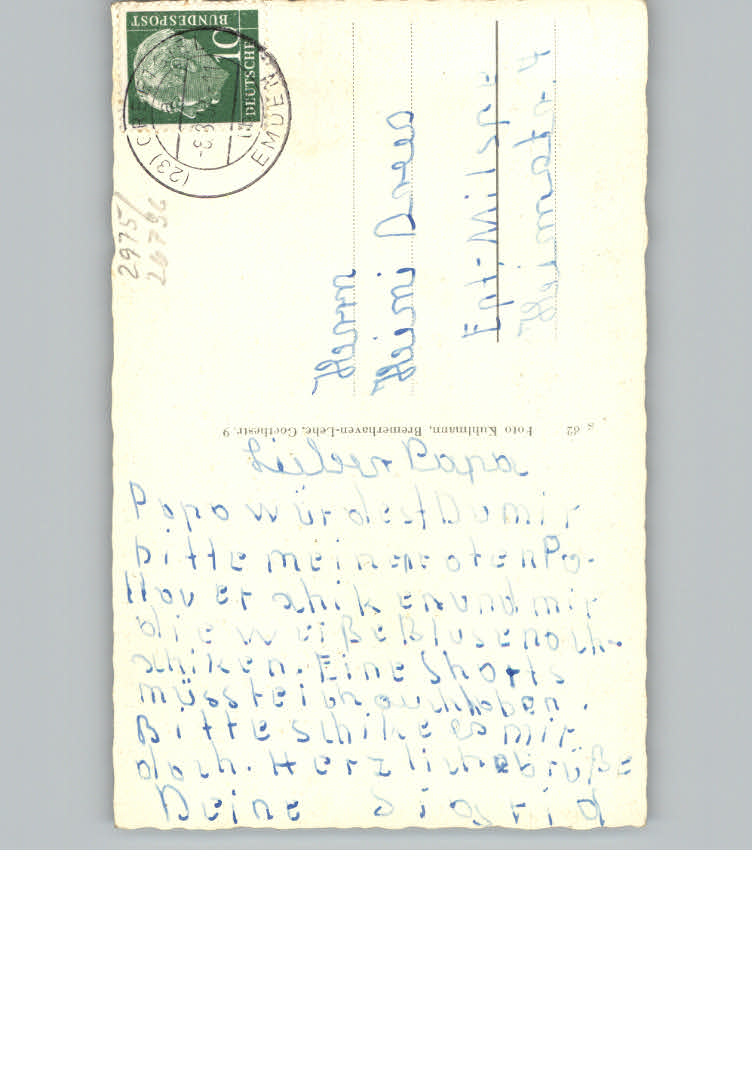 DEUTSCHE
BUNDESPOST
10
(23)
EMDEN
2975/
26796
Herrn
Heini Drews
Ept-Milspe
Foto Kuhlmann, Bremerhaven-Lehe, Goethestr. 9
s 62
Lieber Papa
Papa würdest Du mir
bitte meinen roten Pu-
llover shiken und mir
die weiße Bluse noch
shiken. Eine Shorts
müsste ich auch haben.
Bitte schike es mir
doch. Herzliche Grüße
Deine Sigrid